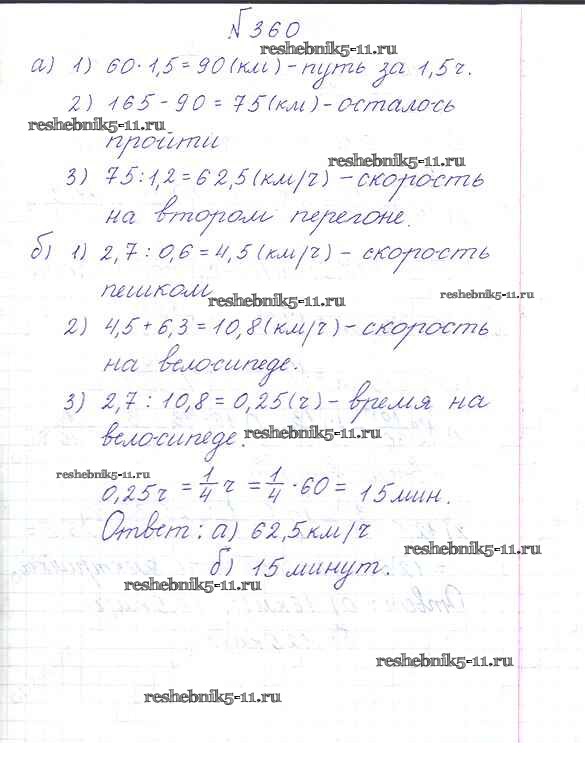 №360
reshebnik5-11.ru
а) 1) 60·1,5=90(км)-путь за 1,5ч.
2) 165-90=75(км)-осталось
reshebnik5-11.ru
пройти
reshebnik5-11.ru
3) 75:1,2=62,5(км/ч)-скорость
на втором перегоне.
б) 1) 2,7:0,6=4,5(км/ч)-скорость
пешком
reshebnik5-11.ru
reshebnik5-11.ru
2) 4,5+6,3=10,8(км/ч)-скорость
на велосипеде.
3) 2,7:10,8=0,25(ч)-время на
велосипеде.
reshebnik5-11.ru
reshebnik5-11.ru
0,25ч = 1/4 ч = 1/4 · 60 = 15мин.
Ответ: а) 62,5км/ч
reshebnik5-11.ru
б) 15минут.
reshebnik5-11.ru
reshebnik5-11.ru
reshebnik5-11.ru